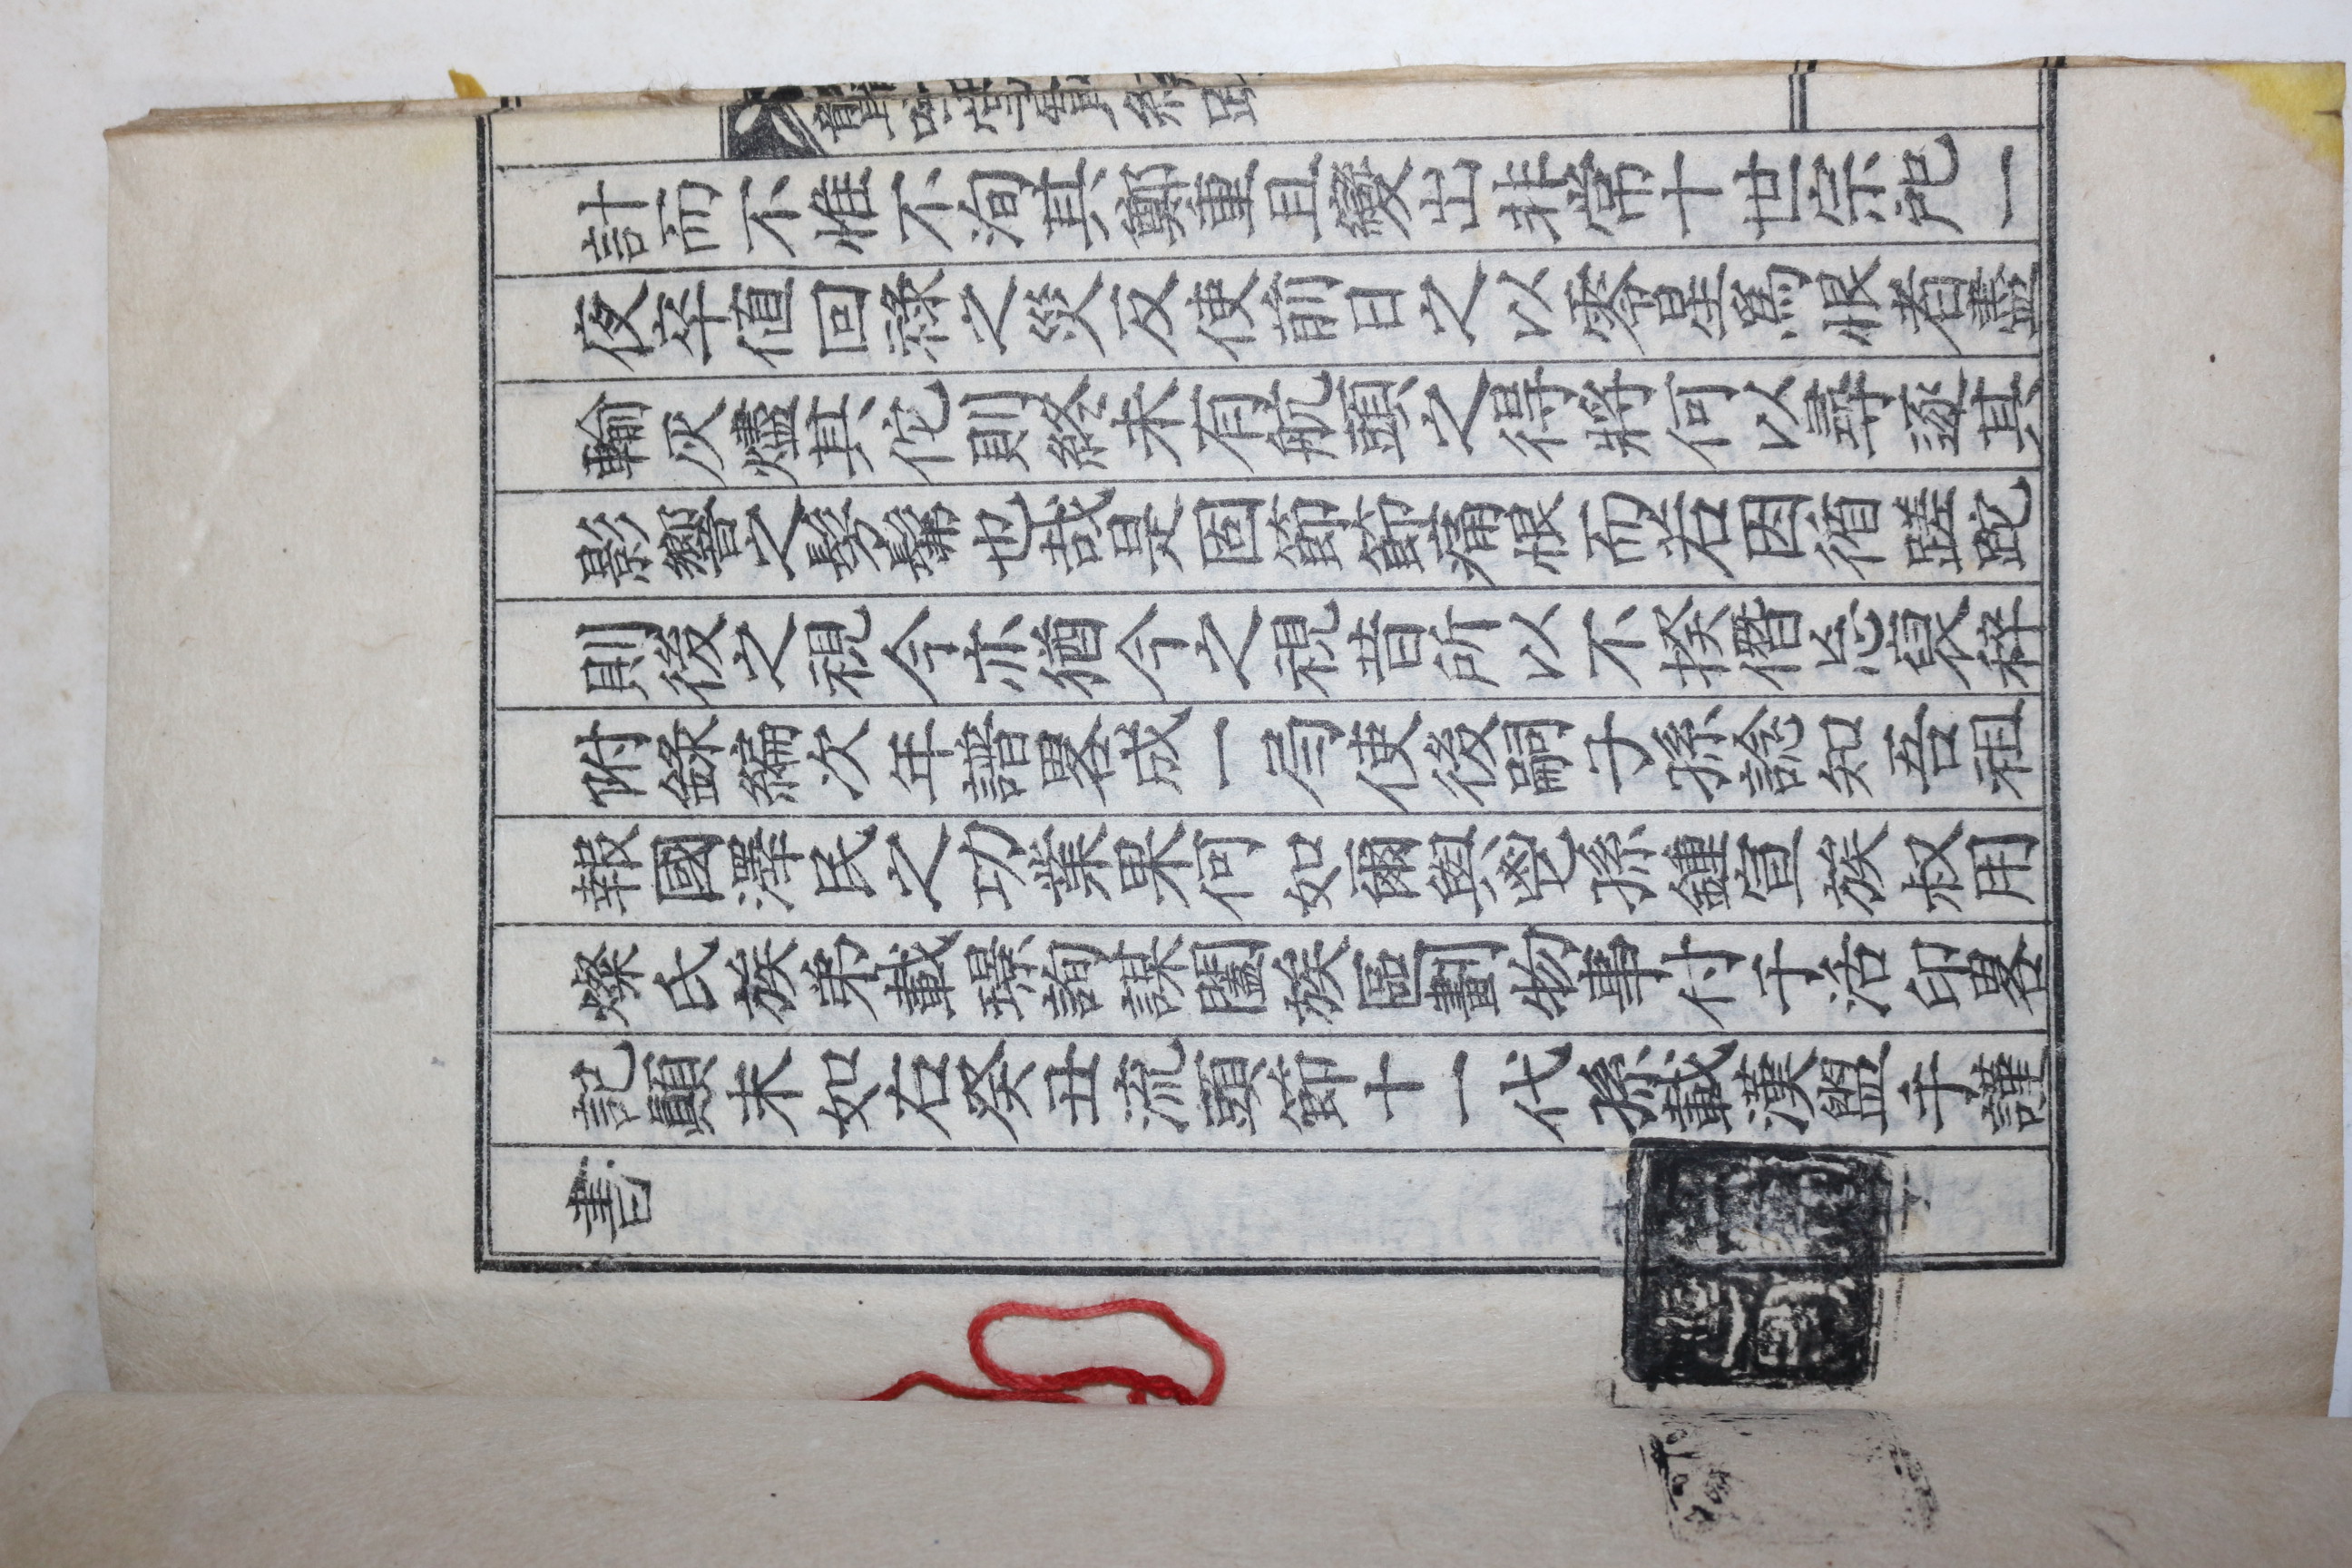 計而不惟不洵其鄭重且變出非常十世宗祀一
夜卒値回祿之災反使前日之以零星爲恨者盡
輸灰燼其佗則終未有航頭之得將何以尋逐其
影響之髣髴也哉是固節節痛恨而若因循蹉跎
則後之視今亦猶今之視昔所以不揆僭忘裒稡
附錄編次年譜畧成一局使後嗣子孫諗知吾祖
報國澤民之功業果何如爾與孫鍾宣族叔用
燦氏族弟載璟詢謀闔族區劃物事付于活印畧
記顚末如右癸丑流頭節十一代孫載漢盥手謹
書